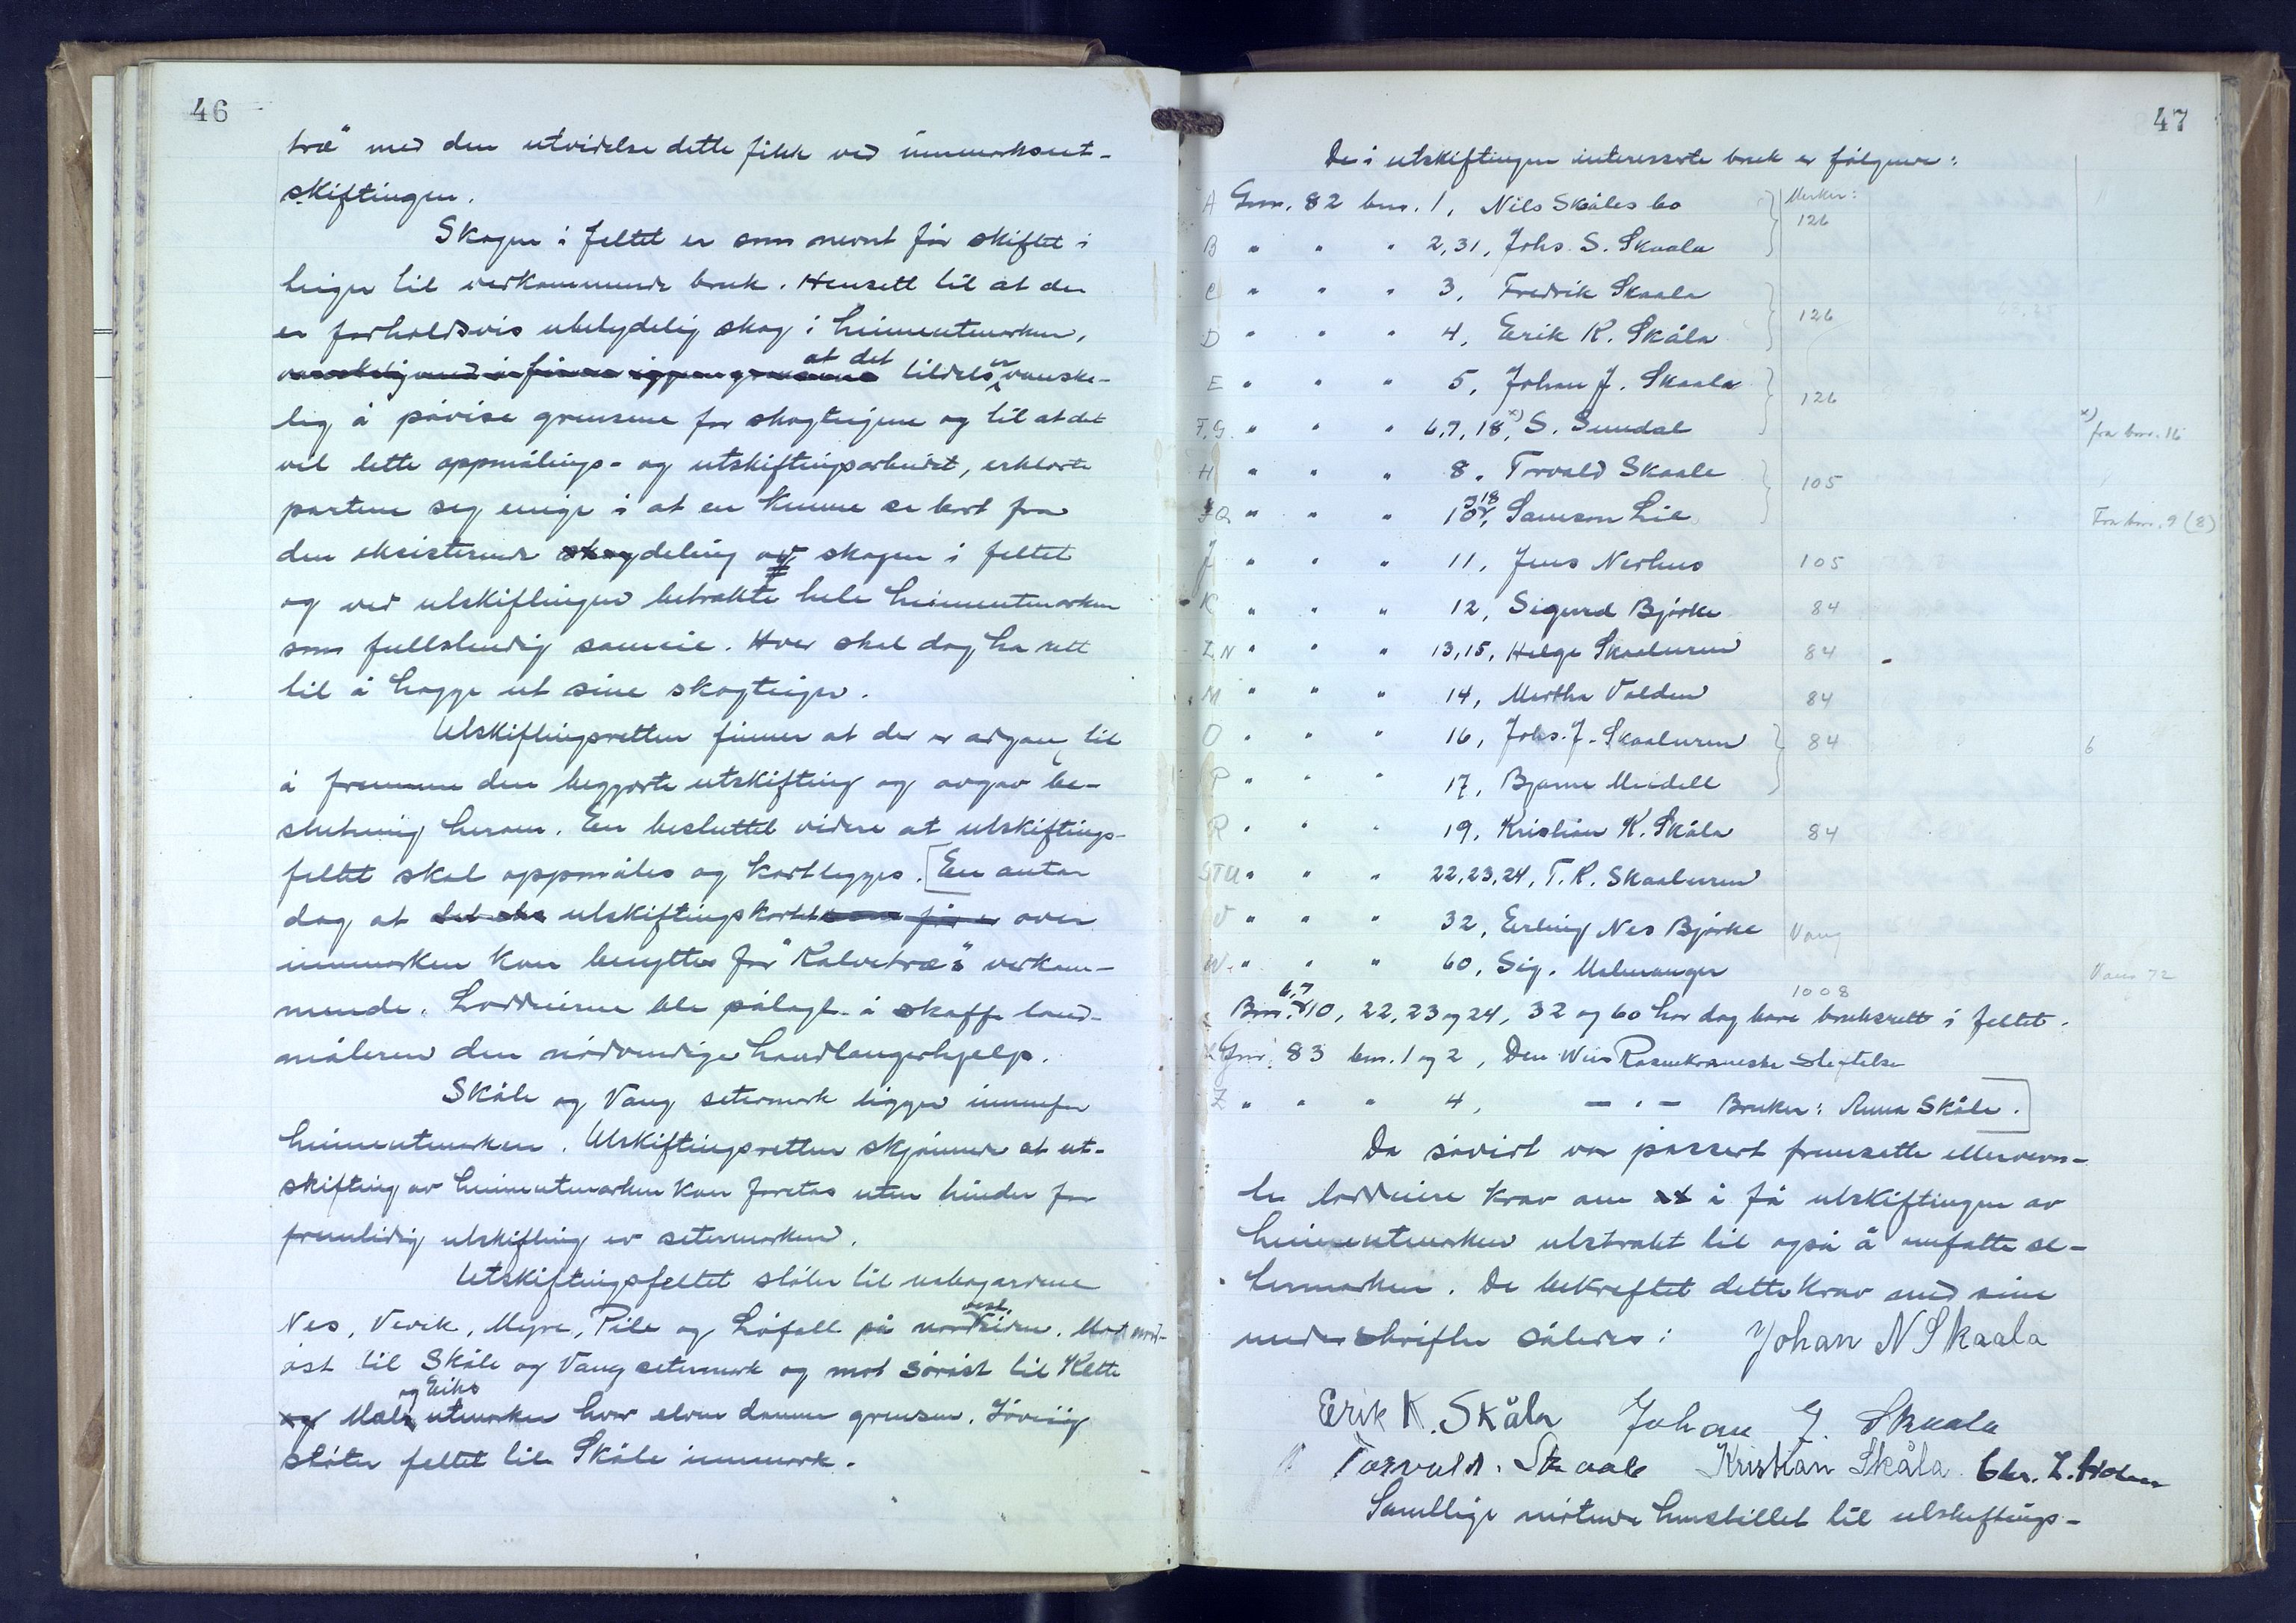 46
træ" med den utvidelse dette fikk ved innmarksut-
skiftingen.
Skogen i feltet er som nevnt før skiftet i
teiger til vedkommende bruk. Hensett til at der
er forholdsvis ubetydelig skog i heimeutmarken,
at det tildels er vanske-
lig å påvise grensene for skogteigene og til at det
vil lette oppmålings- og utskiftingsarbeidet, erklærte
partene seg enige i at en kunne se bort fra
den eksisterende skogdeling av skogen i feltet
og ved utskiftingen betrakte hele heimeutmarken
som fullstendig sameie. Hver skal dog ha rett
til å hogge ut sine skogteiger.
Utskiftingsretten finner at der er adgang til
å fremme den begjærte utskifting og avgav be-
slutning herom. En besluttet videre at utskiftings-
feltet skal oppmåles og kartlegges. [En antar
dog at utskiftingskartet over
innmarken kan benyttes for "Kalvetræ"s vedkom-
mende. Loddeierne ble pålagt å skaffe land-
måleren den nødvendige handlangerhjelp.
Skåle og Vang setermark ligger innenfor
heimeutmarken. Utskiftingsretten skjønner at ut-
skifting av heimeutmarken kan foretas uten hinder for
fremtidig utskifting av setermarken.
Utskiftingsfeltet støter til nabogardene
Nes, Vevik, Myre, Pile og Løfall på nordvestsiden. Mot nord-
øst til Skåle og Vang setermark og mot sørøst til Kleite
og Mæla og Eiks utmarker hvor elven danner grensen. Forøvrig
støter feltet til Skåle innmark.
47
De i utskiftingen interesserte bruk er følgende:
A Gnr. 82 bnr. 1, Nils Skåles bo Merker: 126
B " " " 2,31, Johs. S. Skaala
C " " " 3, Fredrik Skaala 126
D " " " 4, Erik K. Skåla
E " " " 5, Johan J. Skaala 126
F,G. " " " 6,7,18,x) S. Sundal x) fra bnr. 16
H " " " 8, Torvald Skaale 105
I Q " " " 10,18, Samson Lie Fra bnr. 9 (8)
J " " " 11, Jens Nerhus 105
K " " " 12, Sigurd Bjørke 84
L,N " " " 13,15, Helge Skaaluren 84
M " " " 14, Martha Valden 84
O " " " 16, Johs. J. Skaaluren 84 6
P " " " 17, Bjarne Meidell
R " " " 19, Kristian K. Skåla 84
STU " " " 22,23,24, T. R. Skaaluren
V " " " 32, Erling Nes Bjørke Vang
W. " " " 60, Sig. Malmanger Vang 72
1008
Bnr. 6,7 10, 22, 23 og 24, 32 og 60 har dog bare bruksrett i feltet.
Gnr. 83 bnr. 1 og 2, Den Weis Rosenkroneske stiftelse
Z " " " 4, — " — Bruker: Anna Skåle.]
Da såvidt var passert fremsette etternevn-
te loddeiere krav om å få utskiftingen av
heimeutmarken utstrakt til også å omfatte se-
termarken. De bekreftet dette krav med sine
underskrifter således: Johan N Skaala
Erik K. Skåla Johan J. Skaala
Torvald. Skaale Kristian Skåla Chr. L. Holm
Samtlige møtende henstillet til utskiftings-